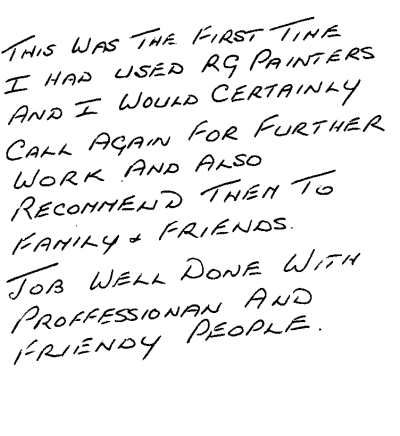 THIS WAS THE FIRST TIME
I HAD USED RG PAINTERS
AND I WOULD CERTAINLY
CALL AGAIN FOR FURTHER
WORK AND ALSO
RECOMMEND THEM TO
FAMILY & FRIENDS.
JOB WELL DONE WITH
PROFFESSIONAL AND
FRIENDY PEOPLE.